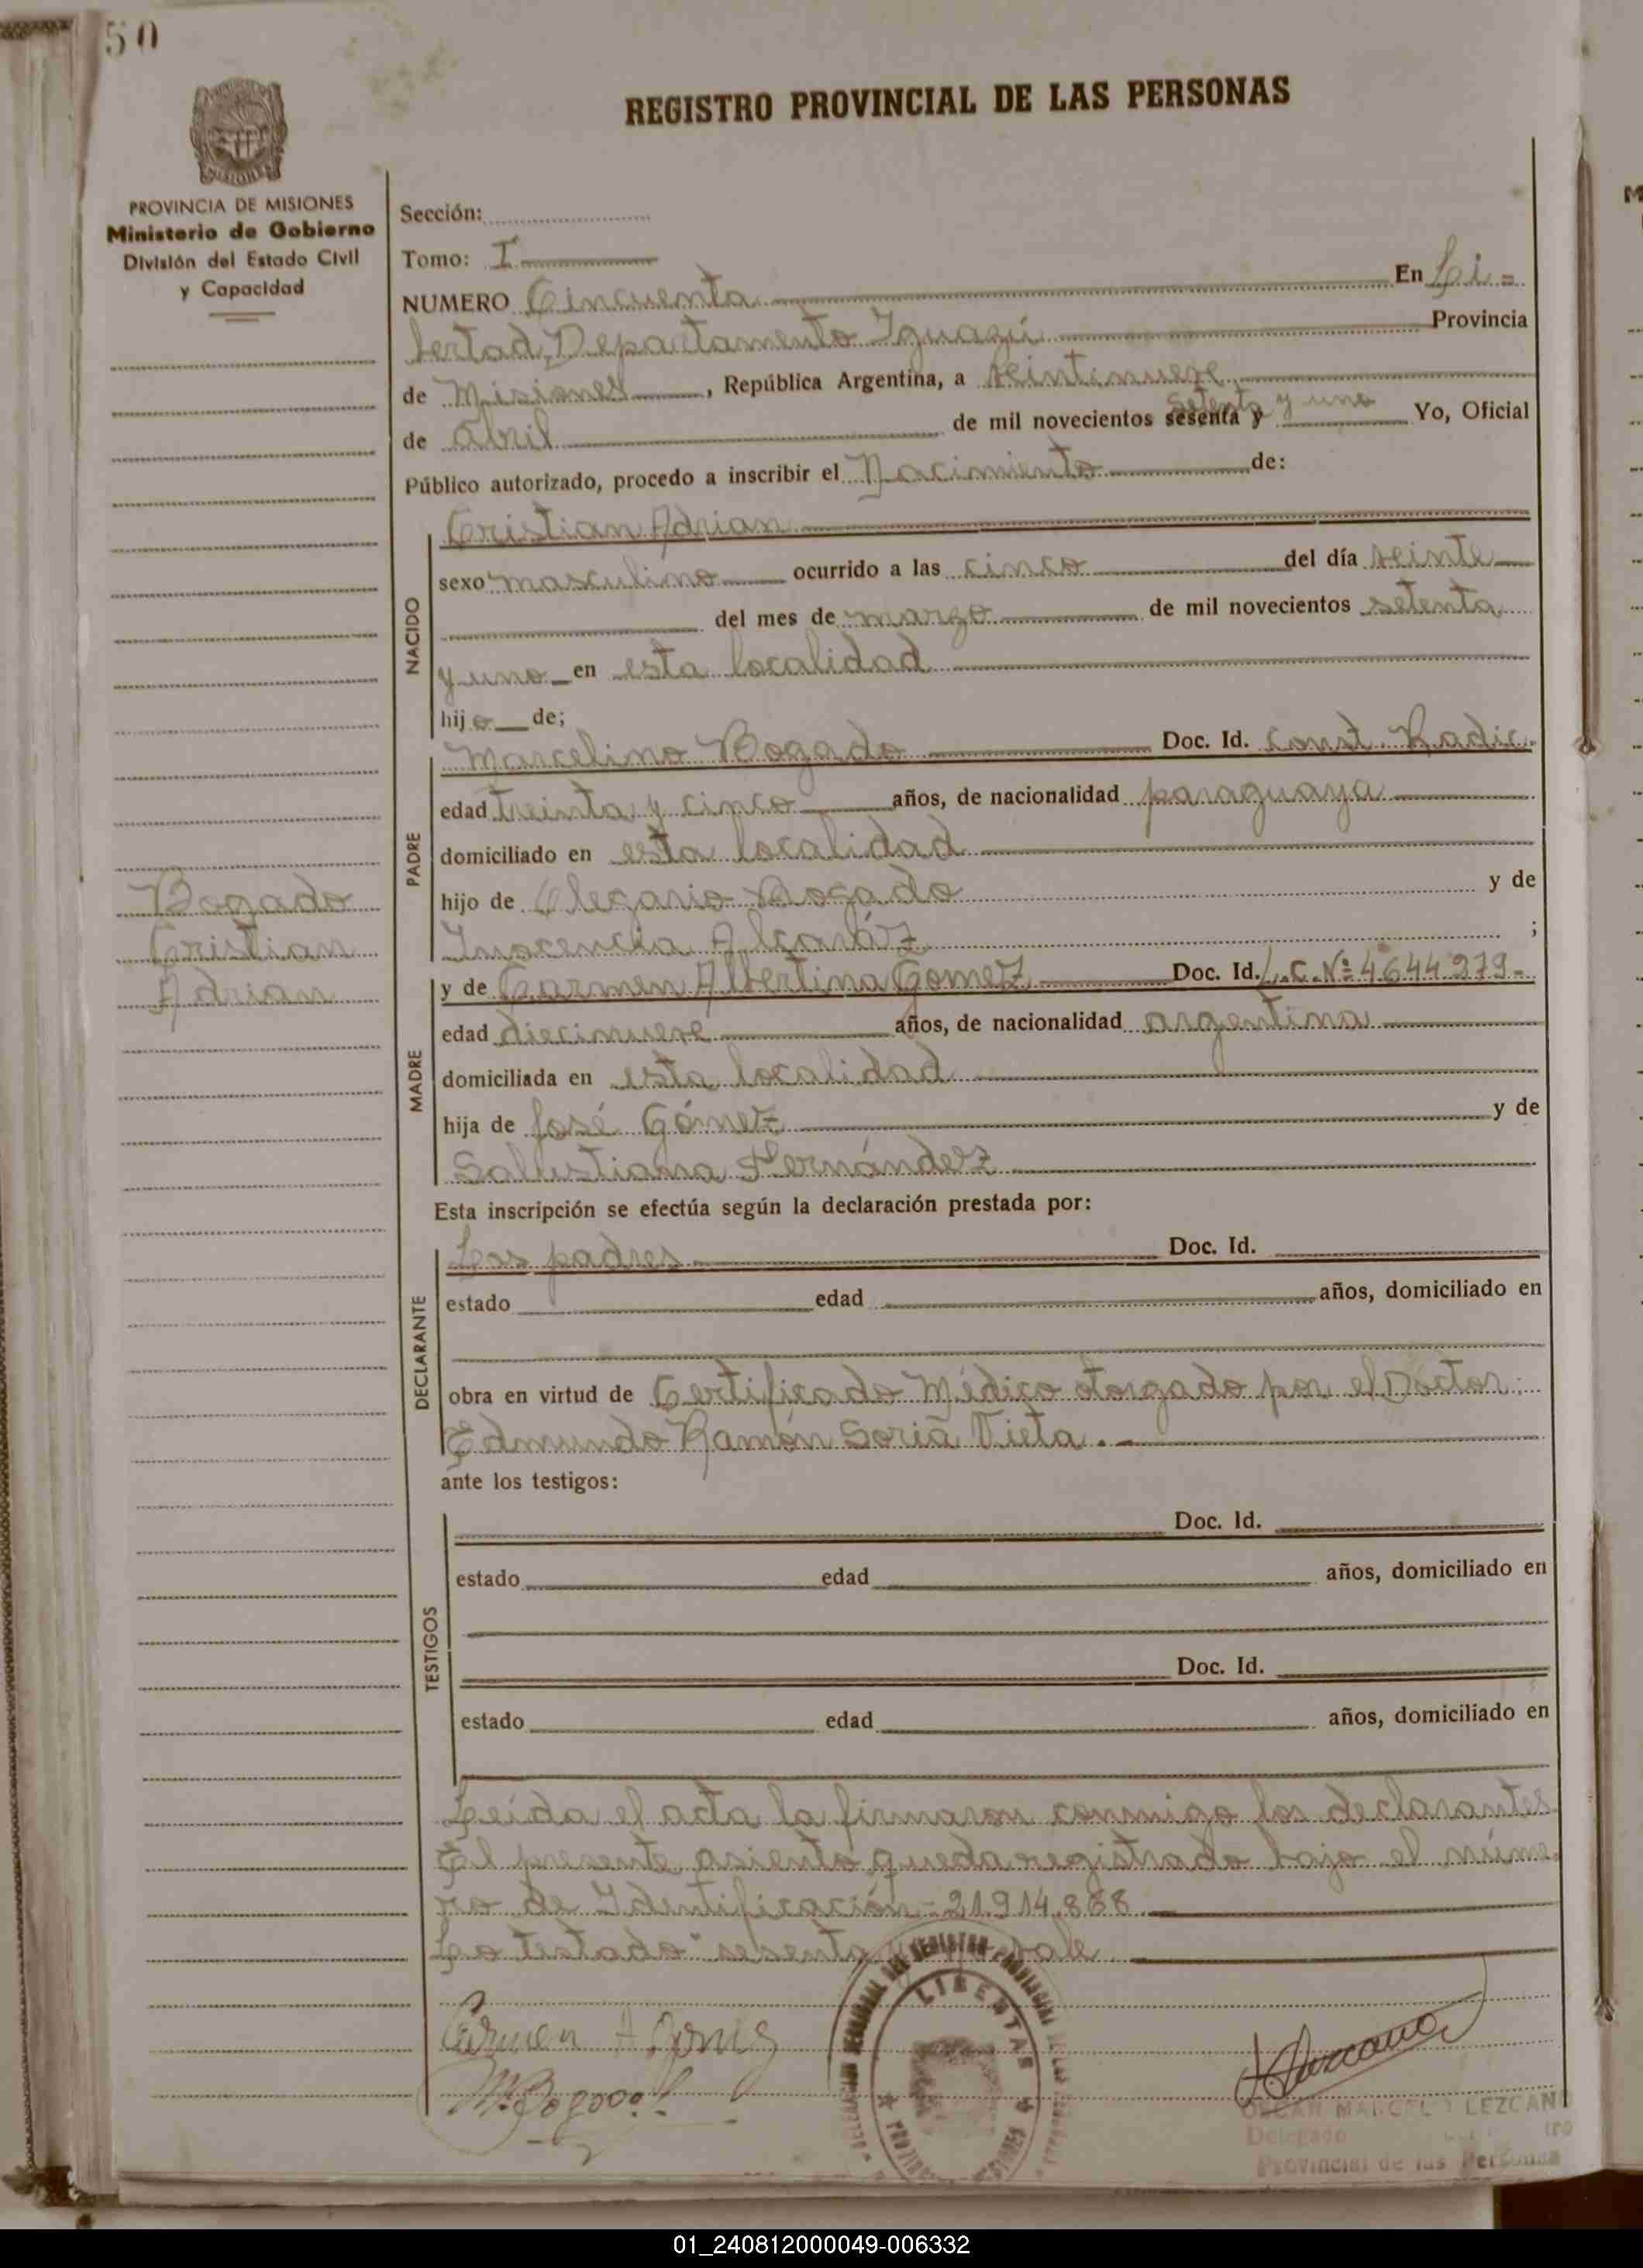 50
REGISTRO PROVINCIAL DE LAS PERSONAS
PROVINCIA DE MISIONES
Ministerio de Gobierno
División del Estado Civil
y Capacidad
Sección:
Tomo: I
NUMERO Cincuenta En Li=
bertad, Departamento Iguazú Provincia
de Misiones, República Argentina, a veintinueve
de abril de mil novecientos sesenta y setenta y uno Yo, Oficial
Público autorizado, procedo a inscribir el Nacimiento de:
NACIDO
Cristian Adrian
sexo masculino ocurrido a las cinco del día veinte
del mes de marzo de mil novecientos setenta
y uno en esta localidad
hijo de;
PADRE
Marcelino Bogado Doc. Id. const. Radic.
edad treinta y cinco años, de nacionalidad paraguaya
domiciliado en esta localidad
hijo de Olegario Bogado y de
Inocencia Alcaráz ;
Bogado
Cristian
Adrian
MADRE
y de Carmen Albertina Gomez Doc. Id. L.C. Nº 4644279-
edad diecinueve años, de nacionalidad argentina
domiciliada en esta localidad
hija de José Gómez y de
Salustiana Fernández
Esta inscripción se efectúa según la declaración prestada por:
DECLARANTE
Los padres Doc. Id.
estado edad años, domiciliado en
obra en virtud de Certificado Médico otorgado por el Doctor:
Edmundo Ramón Soria Vieta.-
ante los testigos:
TESTIGOS
Doc. Id.
estado edad años, domiciliado en
Doc. Id.
estado edad años, domiciliado en
Leida el acta la firmaron conmigo los declarantes
El presente asiento queda registrado bajo el núme
ro de Identificación-21.914.868
Lo testado "sesenta y" vale
Carmen A Gomez
M. Bogado
LIBERTAD
Lezcano
OSCAR MARCELO LEZCANO
Delegado
Provincial de las Personas
01_240812000049-006332